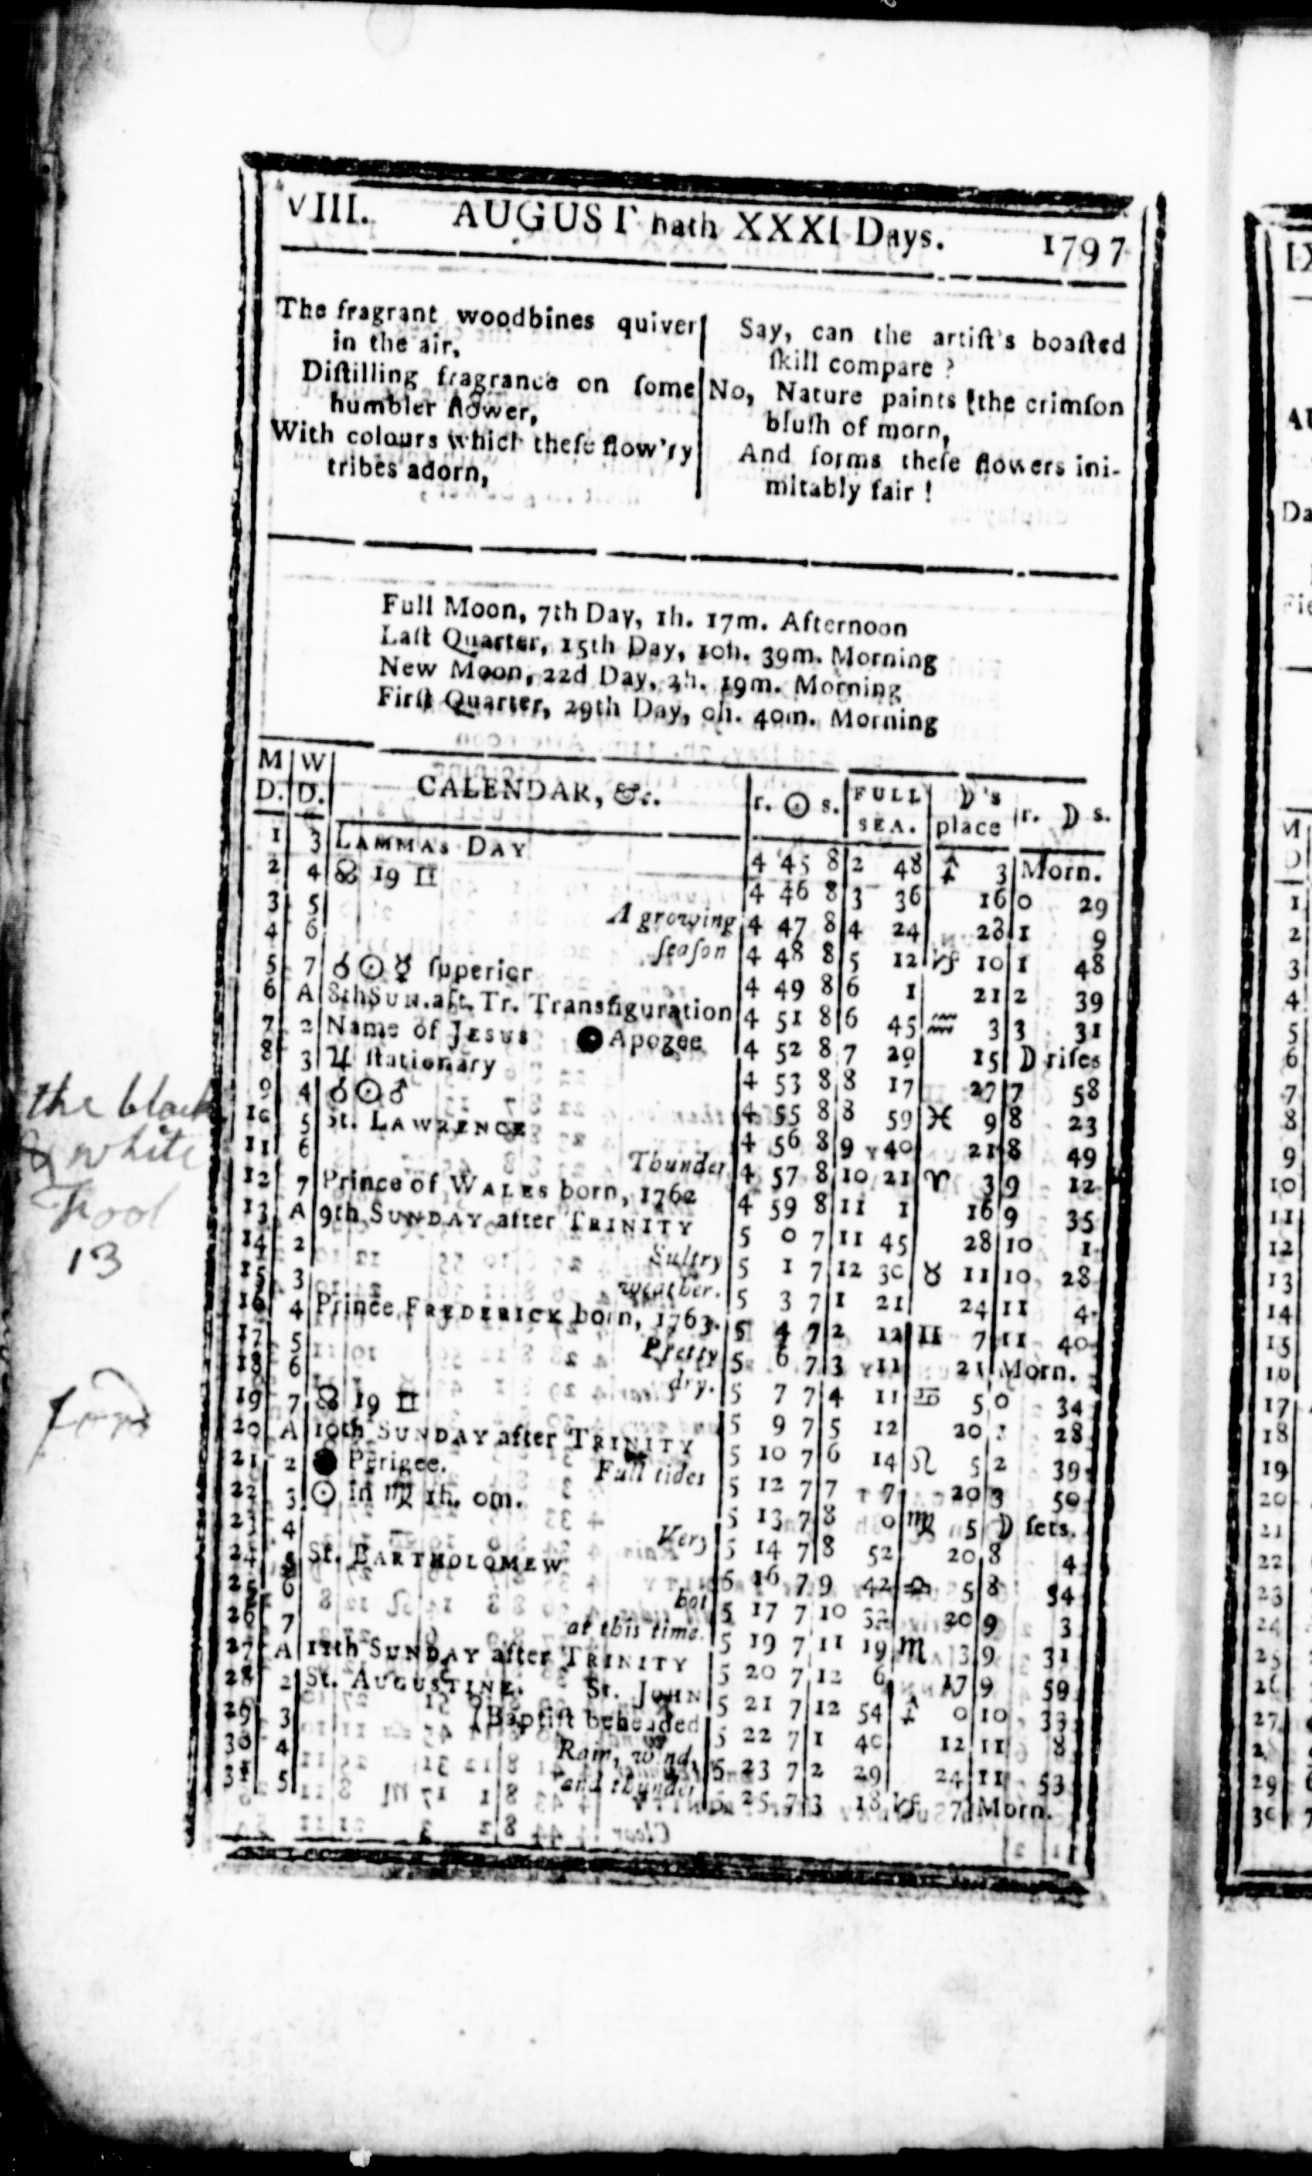 VIII. AUGUST hath XXXI Days. 1797
The fragrant woodbines quiver
in the air,
Diſtilling fragrance on ſome
humbler flower,
With colours which theſe flow'ry
tribes adorn,
Say, can the artiſt's boaſted
ſkill compare ?
No, Nature paints the crimſon
bluſh of morn,
And forms theſe flowers ini-
mitably fair !
Full Moon, 7th Day, 1h. 17m. Afternoon
Laſt Quarter, 15th Day, 10h. 39m. Morning
New Moon, 22d Day, 2h. 19m. Morning
Firſt Quarter, 29th Day, 0h. 40m. Morning
M D. | W D. | CALENDAR, &c. | r. ☉ s. | FULL SEA. | ☽'s place | r. ☽ s.
1 3 LAMMAS DAY 4 45 8 2 48 ♐ 3 Morn.
2 4 ☊ 19 ♊ 4 46 8 3 36 16 0 29
3 5 A growing 4 47 8 4 24 28 1 9
4 6 ſeaſon 4 48 8 5 12 ♑ 10 1 48
5 7 ☌ ☉ ☿ ſuperior 4 49 8 6 1 21 2 39
6 A 8th SUN. aft. Tr. Transfiguration 4 51 8 6 45 ♒ 3 3 31
7 2 Name of JESUS ● Apogee 4 52 8 7 29 15 ☽ riſes
8 3 ♃ ſtationary 4 53 8 8 17 27 7 58
9 4 ☌ ☉ ♂ 4 55 8 8 59 ♓ 9 8 23
10 5 St. LAWRENCE 4 56 8 9 40 21 8 49
11 6 Thunder 4 57 8 10 21 ♈ 3 9 12
12 7 Prince of WALES born, 1762 4 59 8 11 1 16 9 35
13 A 9th SUNDAY after TRINITY 5 0 7 11 45 28 10 1
14 2 Sultry 5 1 7 12 30 ♉ 11 10 28
15 3 weather. 5 3 7 1 21 24 11 4
16 4 Prince FREDERICK born, 1763. 5 4 7 2 12 ♊ 7 11 40
17 5 Pretty 5 6 7 3 11 21 Morn.
18 6 dry. 5 7 7 4 11 ♋ 5 0 34
19 7 ☊ 19 ♊ 5 9 7 5 12 20 1 28
20 A 10th SUNDAY after TRINITY 5 10 7 6 14 ♌ 5 2 39
21 2 ● Perigee. Full tides 5 12 7 7 7 20 3 50
22 3 ☉ in ♍ 1h. 0m. 5 13 7 8 0 ♍ 5 ☽ ſets.
23 4 Very 5 14 7 8 52 20 8 4
24 5 St. BARTHOLOMEW 5 16 7 9 42 ♎ 5 8 34
25 6 hot 5 17 7 10 32 20 9 3
26 7 at this time. 5 19 7 11 19 ♏ 3 9 31
27 A 11th SUNDAY after TRINITY 5 20 7 12 6 17 9 59
28 2 St. AUGUSTINE. St. JOHN 5 21 7 12 54 ♐ 0 10 33
29 3 Baptiſt beheaded 5 22 7 1 40 12 11 8
30 4 Rain, wind, 5 23 7 2 29 24 11 53
31 5 and thunder 5 25 7 3 18 ♑ 7 Morn.
the black
& white
13
IX
M
D
1
2
3
4
5
6
7
8
9
10
11
12
13
14
15
16
17
18
19
20
21
22
23
24
25
26
27
29
30